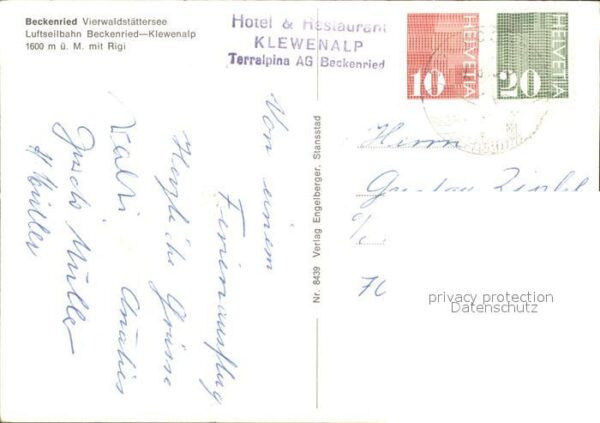 Beckenried Vierwaldstättersee
Luftseilbahn Beckenried—Klewenalp
1600 m ü. M. mit Rigi
Hotel & Restaurant
KLEWENALP
Terralpina AG Beckenried
HELVETIA
10
HELVETIA
20
Von einem
Ferienausflug
Herzliche Grüsse
Müller
H Müller
Nr. 8439 Verlag Engelberger, Stansstad
Herrn
Gustav
privacy protection
Datenschutz